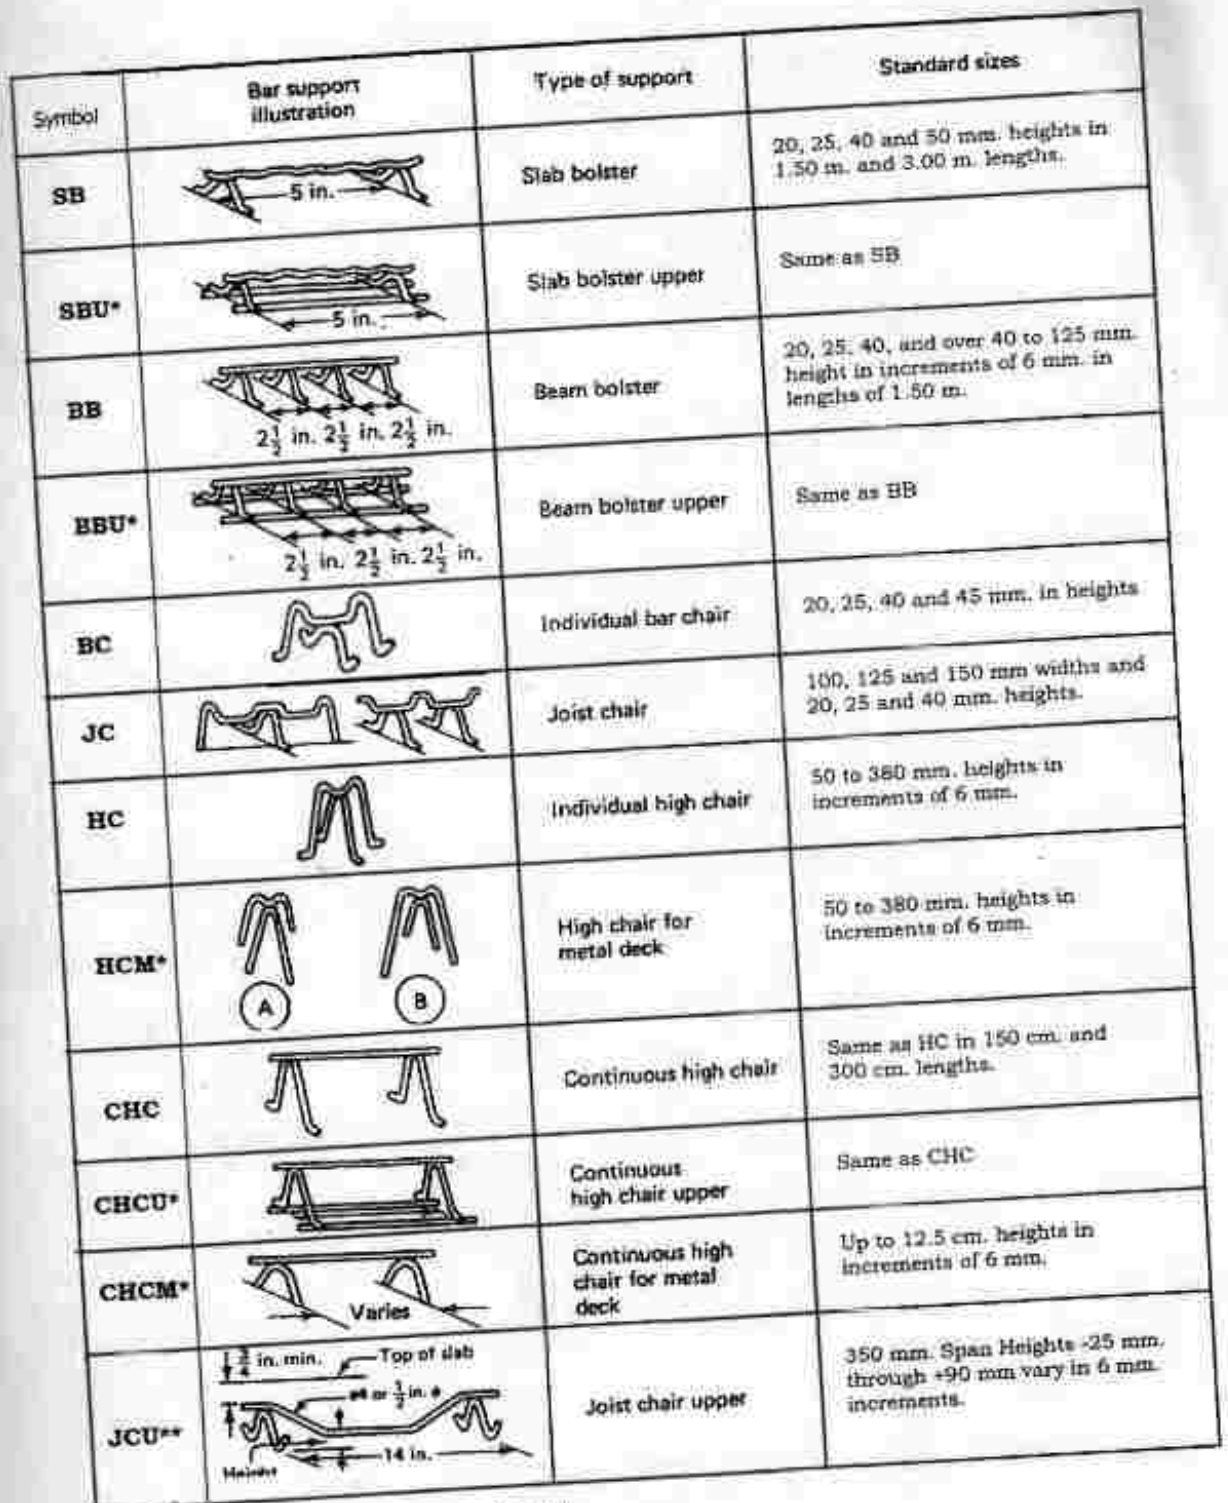 Symbol
Bar support
illustration
Type of support
Standard sizes
SB
5 in.
Slab bolster
20, 25, 40 and 50 mm. heights in
1.50 m. and 3.00 m. lengths.
SBU*
5 in.
Slab bolster upper
Same as SB
BB
2 1/2 in. 2 1/2 in. 2 1/2 in.
Beam bolster
20, 25, 40, and over 40 to 125 mm.
height in increments of 6 mm. in
lengths of 1.50 m.
BBU*
2 1/2 in. 2 1/2 in. 2 1/2 in.
Beam bolster upper
Same as BB
BC
Individual bar chair
20, 25, 40 and 45 mm. in heights
JC
Joist chair
100, 125 and 150 mm widths and
20, 25 and 40 mm. heights.
HC
Individual high chair
50 to 380 mm. heights in
increments of 6 mm.
HCM*
A
B
High chair for
metal deck
50 to 380 mm. heights in
increments of 6 mm.
CHC
Continuous high chair
Same as HC in 150 cm. and
300 cm. lengths.
CHCU*
Continuous
high chair upper
Same as CHC
CHCM*
Varies
Continuous high
chair for metal
deck
Up to 12.5 cm. heights in
increments of 6 mm.
JCU**
3/4 in. min.
Top of slab
#4 or 1/2 in. ø
14 in.
Height
Joist chair upper
350 mm. Span Heights -25 mm.
through +90 mm vary in 6 mm.
increments.